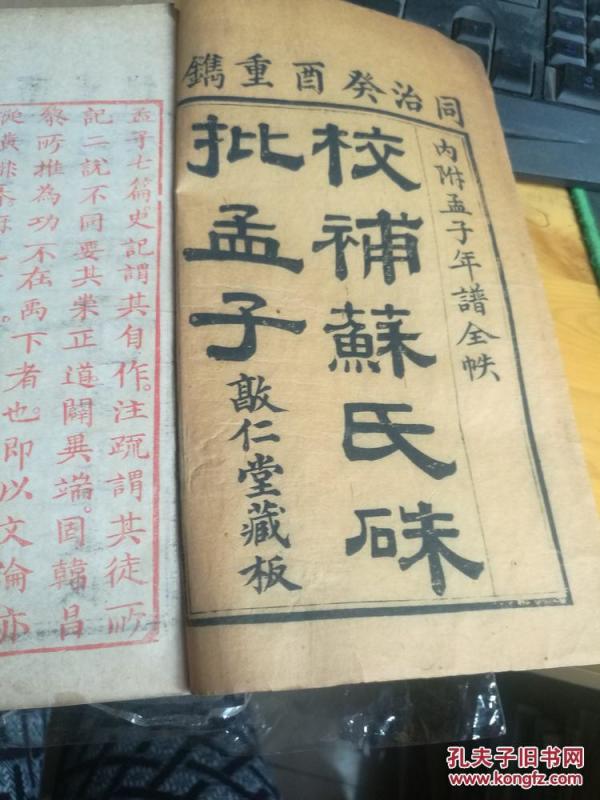 同治癸酉重鐫
內附孟子年譜全帙
校補蘇氏硃
批孟子
敦仁堂藏板
孟子七篇史記謂其自作。注疏謂其徒所
記二說不同要其崇正道闢異端。固韓昌
黎所推為功不在禹下者也。即以文論亦
孔夫子旧书网
www.kongfz.com